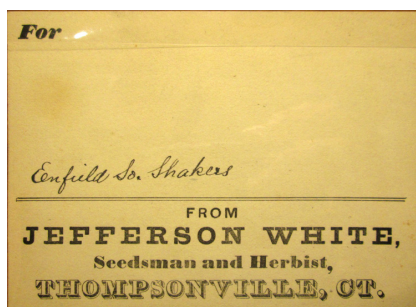 For
Enfield So. Shakers
FROM
JEFFERSON WHITE,
Seedsman and Herbist,
THOMPSONVILLE, CT.